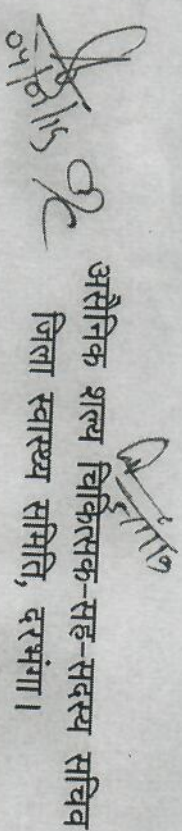 असैनिक शल्य चिकित्सक-सह-सदस्य सचिव
जिला स्वास्थ्य समिति, दरभंगा।